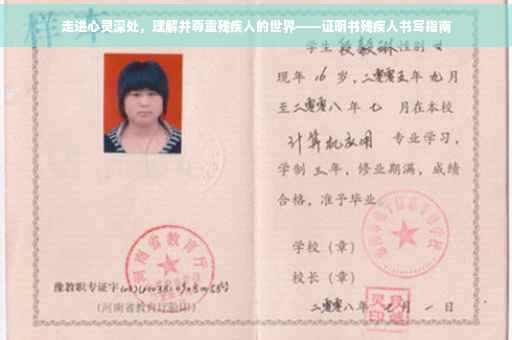 走进心灵深处，理解并尊重残疾人的世界——证明书残疾人书写指南
样本
学生 性别 女
现年 16 岁，二零零五年 九月
至二零零八年 七 月在本校
计算机应用 专业学习，
学制 三年，修业期满，成绩
合格，准予毕业。
学校（章）
校长（章）
二零零八年 月 一 日
河南省教育厅
豫教职专证字
（河南省教育厅验印）